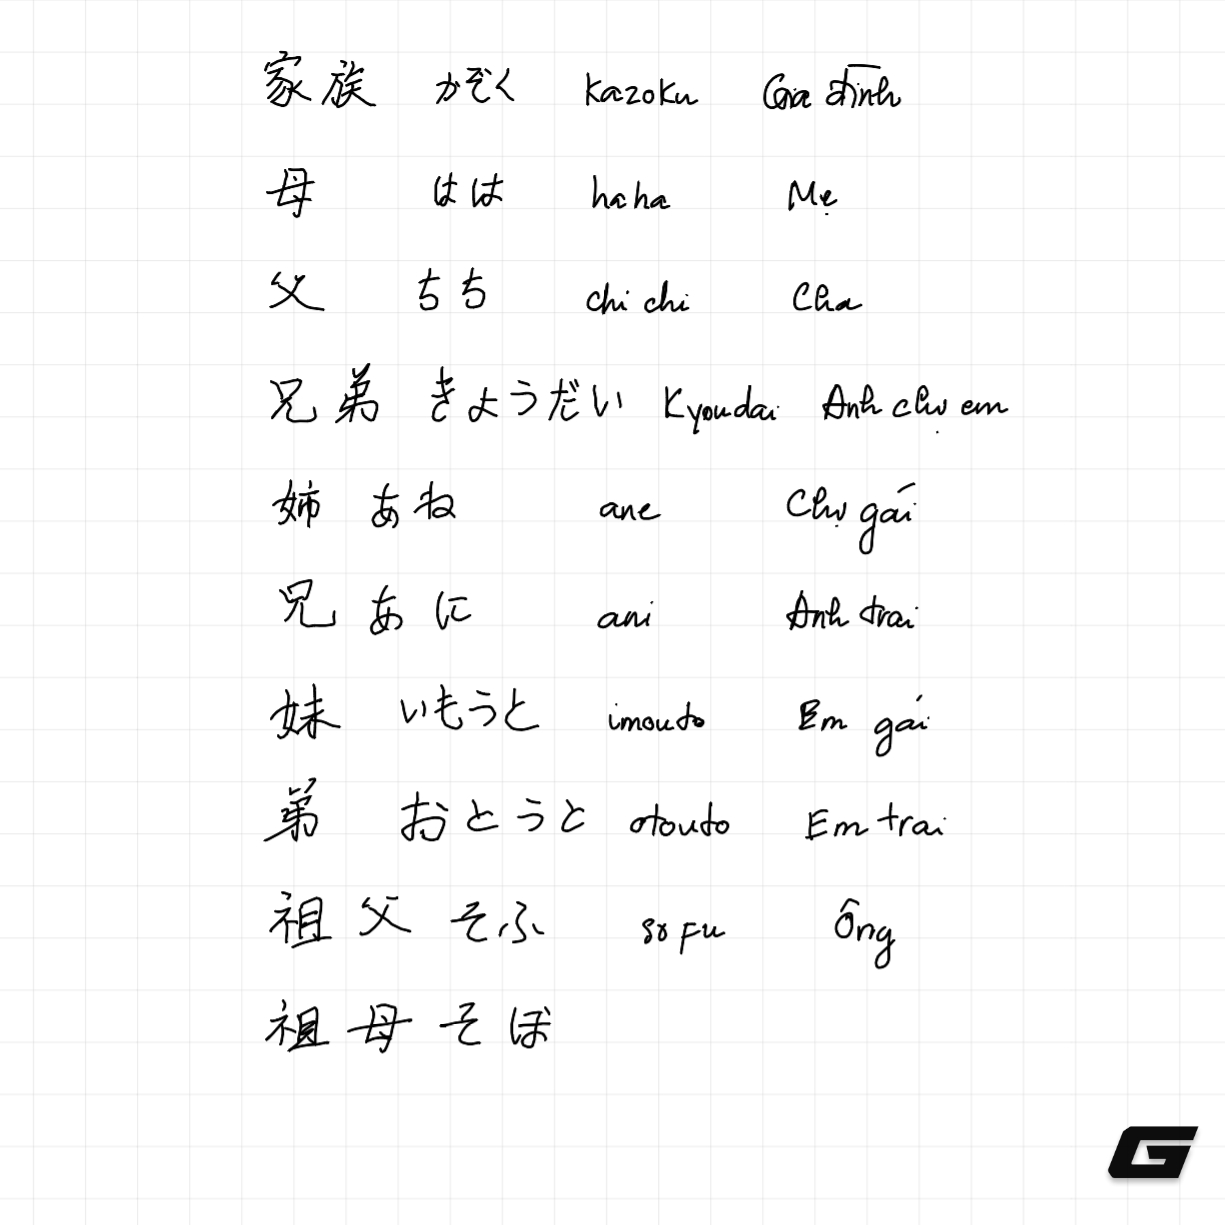 家族 かぞく kazoku Gia đình
母 はは haha Mẹ
父 ちち chichi Cha
兄弟 きょうだい Kyoudai Anh chị em
姉 あね ane Chị gái
兄 あに ani Anh trai
妹 いもうと imouto Em gái
弟 おとうと otouto Em trai
祖父 そふ sofu Ông
祖母 そぼ
G